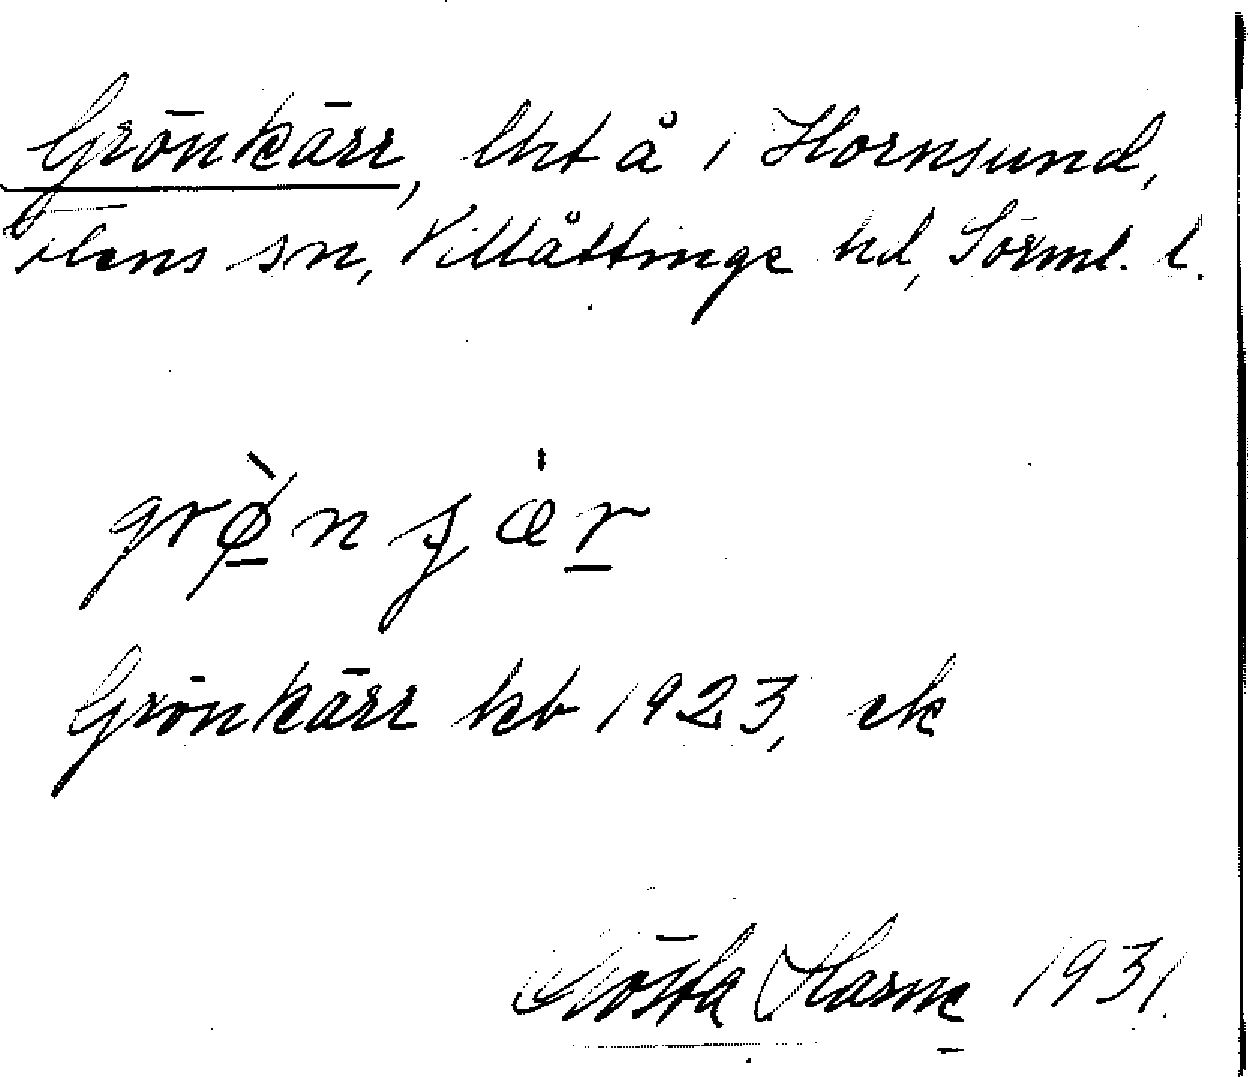 Grönkärr, lht å i Hornsund,
Flens sn, Villåttinge hd, Sörml. l.
grø̀n jæ̀r
Grönkärr kb 1923, ek
Gösta Harne 1931.